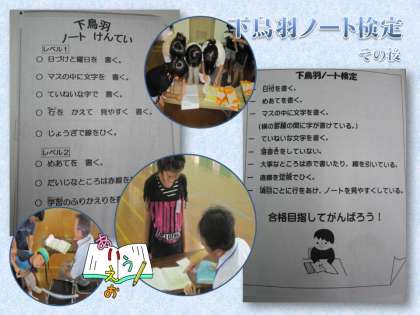 下鳥羽ノート検定
その後
下鳥羽
ノート けんてい
レベル1
○ 日づけと曜日を 書く。
○ マスの中に文字を 書く。
○ ていねいな字で 書く。
○ 行を かえて 見やすく 書く。
○ じょうぎで線をひく。
レベル2
○ めあてを 書く。
○ だいじなところは赤線を
○ 学習のふりかえりを
下鳥羽ノート検定
一 日付を書く。
一 めあてを書く。
一 マスの中に文字を書く。
(横の罫線の間に字が書けている。)
一 ていねいな字で書く。
一 落書きをしていない。
一 大事なところは赤で書いたり、線を引いている。
一 直線を定規でひく。
一 項目ごとに行をあけ、ノートを見やすくしている。
合格目指してがんばろう!
あいうえお